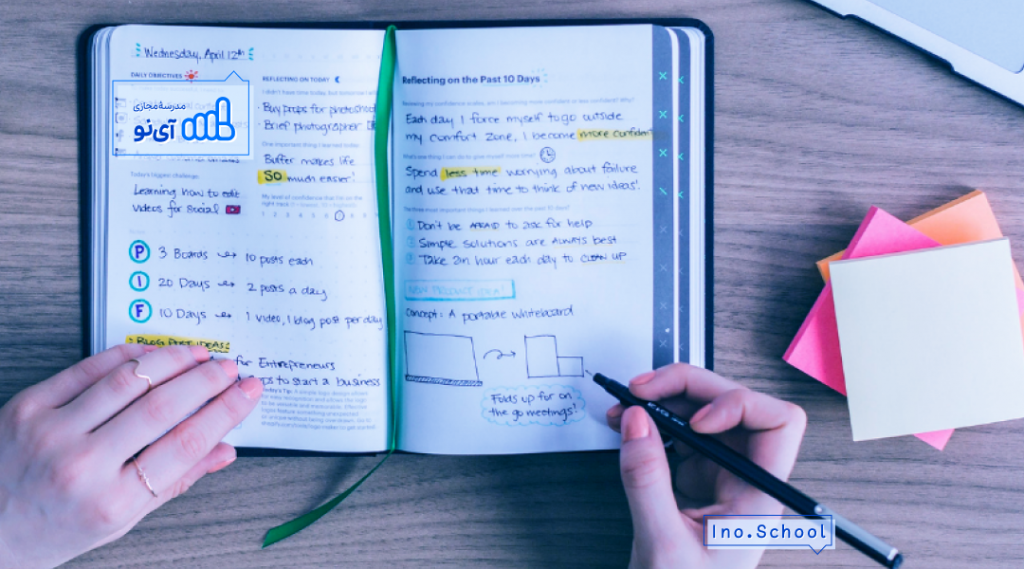 Wednesday, April 12th
DAILY OBJECTIVES
مدرسهٔ مجازی
آی‌نو
Today's biggest challenge
Learning how to edit
videos for social
P 3 Boards → 10 posts each
I 20 Days → 2 posts a day
F 10 Days → 1 video, 1 blog post per day
BLOG POST IDEAS:
for Entrepreneurs
to start a business
REFLECTING ON TODAY
I didn't have time today, but tomorrow I
Buy props for photoshoot
Brief photographer
One important thing I learned today
Buffer makes life
SO much easier!
My level of confidence that I'm on the
1 2 3 4 5 6 7 8 9
Reflecting on the Past 10 Days
Each day I force myself to go outside
my comfort zone, I become more confident
Spend less time worrying about failure
and use that time to think of new ideas!
1 Don't be AFRAID to ask for help
2 Simple solutions are ALWAYS best
3 Take an hour each day to CLEAN UP
NEW PRODUCT IDEA!
Concept: A portable whiteboard
Folds up for on
the go meetings!
Ino.School